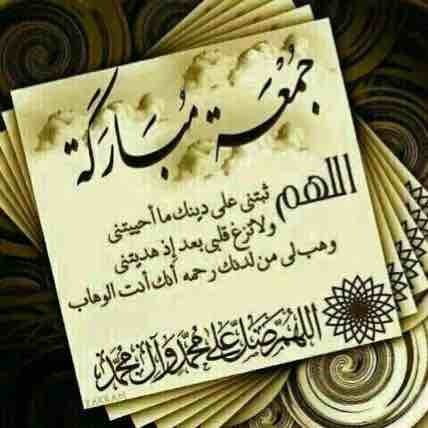 جُمُعَة مُبَارَكَة
اللهم ثبتني على دينك ما أحييتني
ولا تزغ قلبي بعد إذ هديتني
وهب لي من لدنك رحمه أنك أنت الوهاب
اللهُمَّ صَلِّ عَلى مُحَمَّد وَآلِ مُحَمَّد